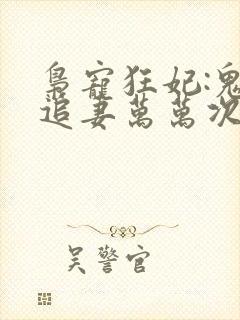 梟寵狂妃:鬼
追妻萬萬次
吳警官